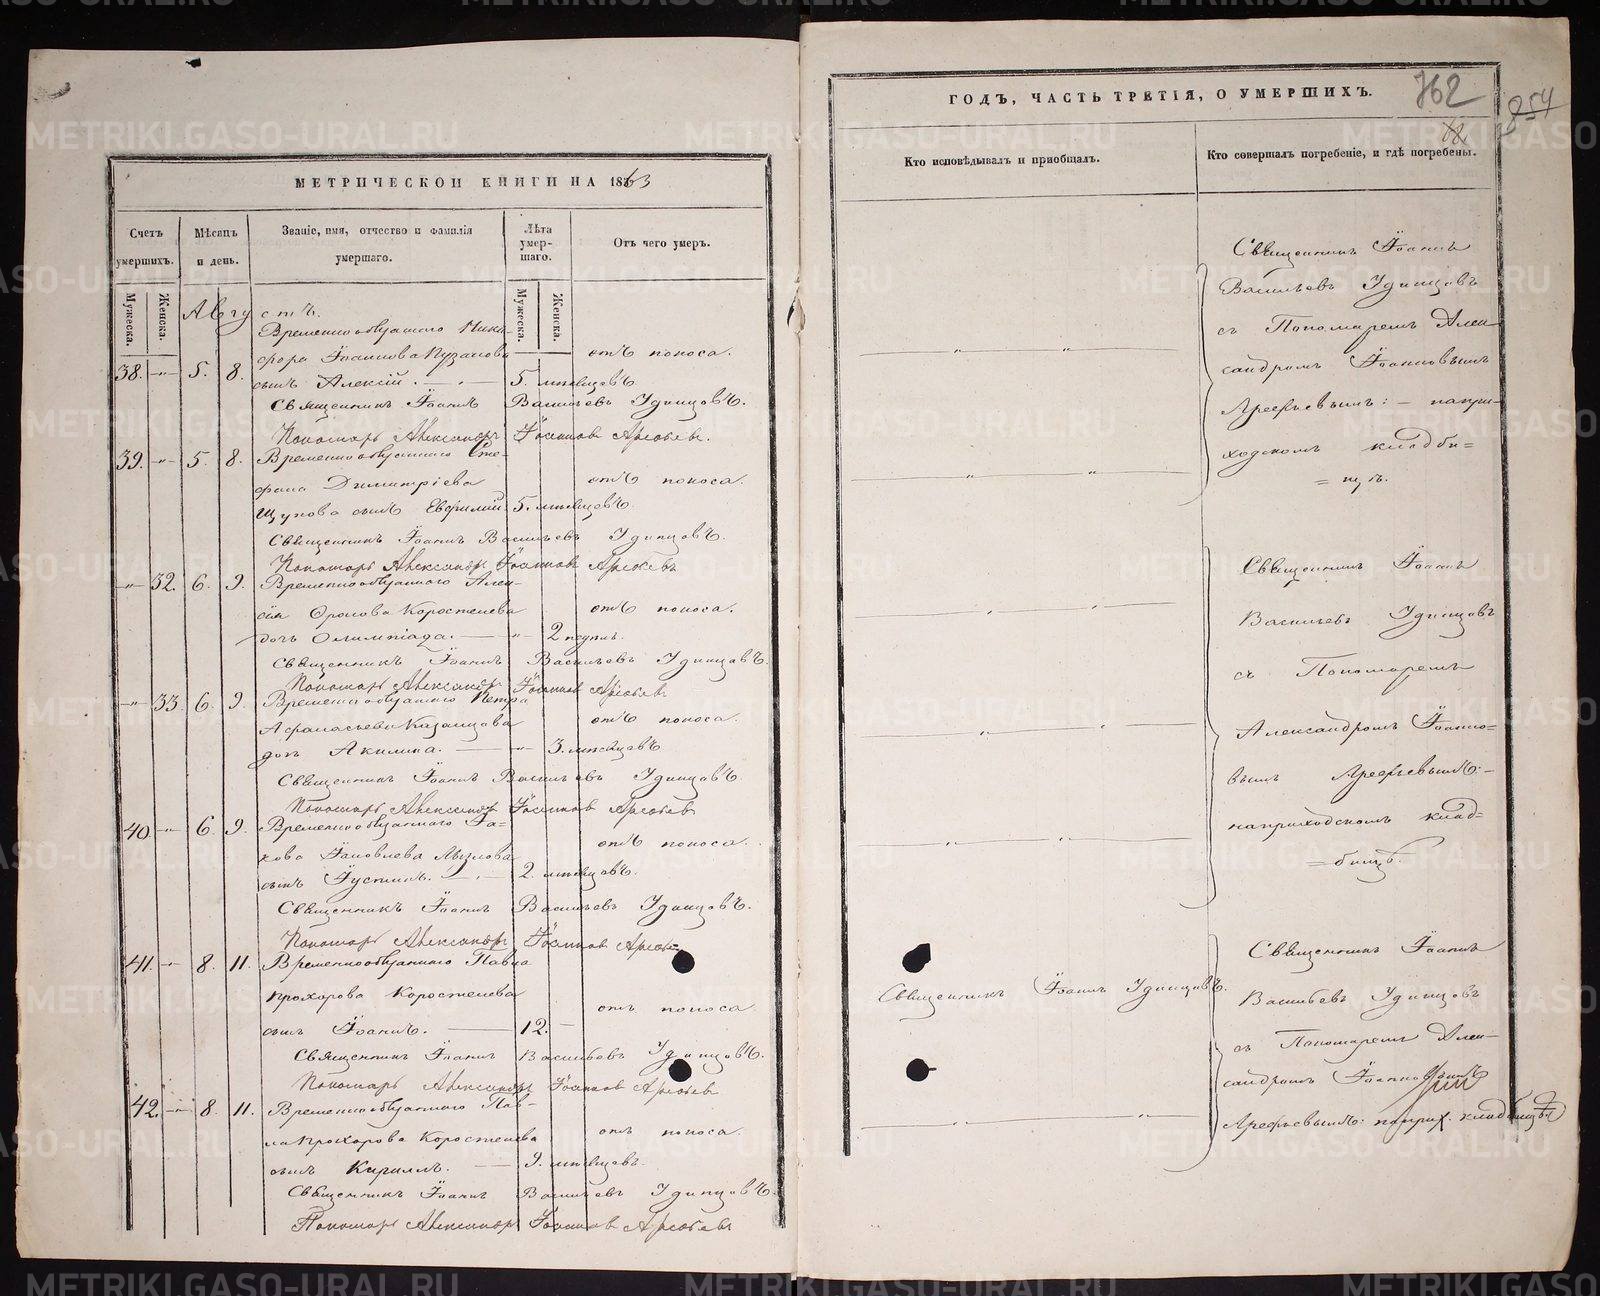 МЕТРИЧЕСКОЙ КНИГИ НА 1863
Счетъ умершихъ.
Мужеска.
Женска.
Мѣсяцъ и день.
Званіе, имя, отчество и фамилія умершаго.
Лѣта умершаго.
Мужеска.
Женска.
Отъ чего умеръ.
Августъ.
Временнообязаннаго Ники-
фора Іоаннова Пузанова
отъ поноса.
38. -"- 5. 8. сынъ Алексій. 5. мѣсяцовъ
Священникъ Іоаннъ Васильевъ Удинцовъ.
Пономарь Александръ Іоанновъ Арефьевъ.
39. -"- 5. 8. Временнообязаннаго Сте-
фана Димитріева
отъ поноса.
Щупова сынъ Евфимій 5. мѣсяцовъ.
Священникъ Іоаннъ Васильевъ Удинцовъ.
Пономарь Александръ Іоанновъ Арефьевъ
-"- 32. 6. 9. Временнообязаннаго Алек-
сія Фролова Коростелева
отъ поноса.
дочь Олимпіада. -"- 2 недѣли.
Священникъ Іоаннъ Васильевъ Удинцовъ.
Пономарь Александръ Іоанновъ Арефьевъ
-"- 33. 6. 9. Временнообязаннаго Петра
Афанасьева Казанцова
отъ поноса.
дочь Акилина. -"- 3. мѣсяцовъ
Священникъ Іоаннъ Васильевъ Удинцовъ.
Пономарь Александръ Іоанновъ Арефьевъ
40. -"- 6. 9. Временнообязаннаго Іа-
кова Іаковлева
отъ поноса.
сынъ Іустинъ. 2. мѣсяцовъ.
Священникъ Іоаннъ Васильевъ Удинцовъ.
Пономарь Александръ Іоанновъ Арефьевъ
41. -"- 8. 11. Временнообязаннаго Павла
Прохорова Коростелева
отъ поноса
сынъ Іоаннъ. 12.
Священникъ Іоаннъ Васильевъ Удинцовъ.
Пономарь Александръ Іоанновъ Арефьевъ
42. -"- 8. 11. Временнообязаннаго Пав-
ла Прохорова Коростелева
отъ поноса.
сынъ Кириллъ. 9. мѣсяцовъ.
Священникъ Іоаннъ Васильевъ Удинцовъ.
Пономарь Александръ Іоанновъ Арефьевъ
ГОДЪ, ЧАСТЬ ТРЕТІЯ, О УМЕРШИХЪ.
762
854
Кто исповѣдывалъ и приобщалъ.
Кто совершалъ погребеніе, и гдѣ погребены.
Священникъ Іоаннъ
Васильевъ Удинцовъ
съ Пономаремъ Алек-
сандромъ Іоанновымъ
Арефьевымъ: – на при-
ходскомъ кладби=
=щѣ.
Священникъ Іоаннъ
Васильевъ Удинцовъ
съ Пономаремъ
Александромъ Іоанно=
вымъ Арефьевымъ: –
на приходскомъ клад=
=бищѣ.
Священникъ Іоаннъ Удинцовъ.
Священникъ Іоаннъ
Васильевъ Удинцовъ
съ Пономаремъ Алек-
сандромъ Іоанновымъ
Арефьевымъ: на прих. кладбищѣ
METRIKI.GASO-URAL.RU